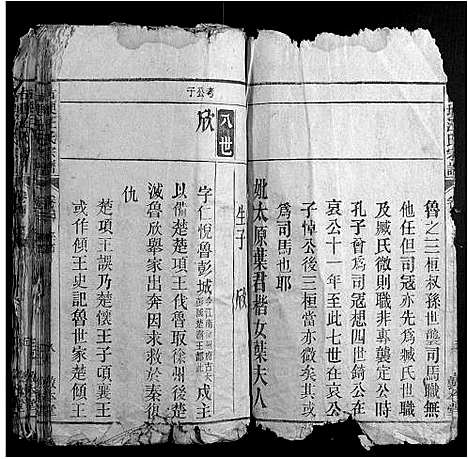 魯之三桓叔孫世襲司馬職無
他任但司寇亦先為臧氏世職
及臧氏微則職非專襲定公時
孔子曾為司寇想四世錡公在
哀公十一年至此七世在哀公
子悼公後三桓當亦微矣其或
為司馬也耶
妣太原葉君楷女葉夫人
生子 欣
八世
考公子
欣
字仁悅魯彭城 戍王
以備楚楚頃王伐魯取徐州後楚
滅魯欣舉家出奔因求救於秦復
仇
楚頃王誤乃楚懷王子頃襄王
或作傾王史記魯世家楚傾王